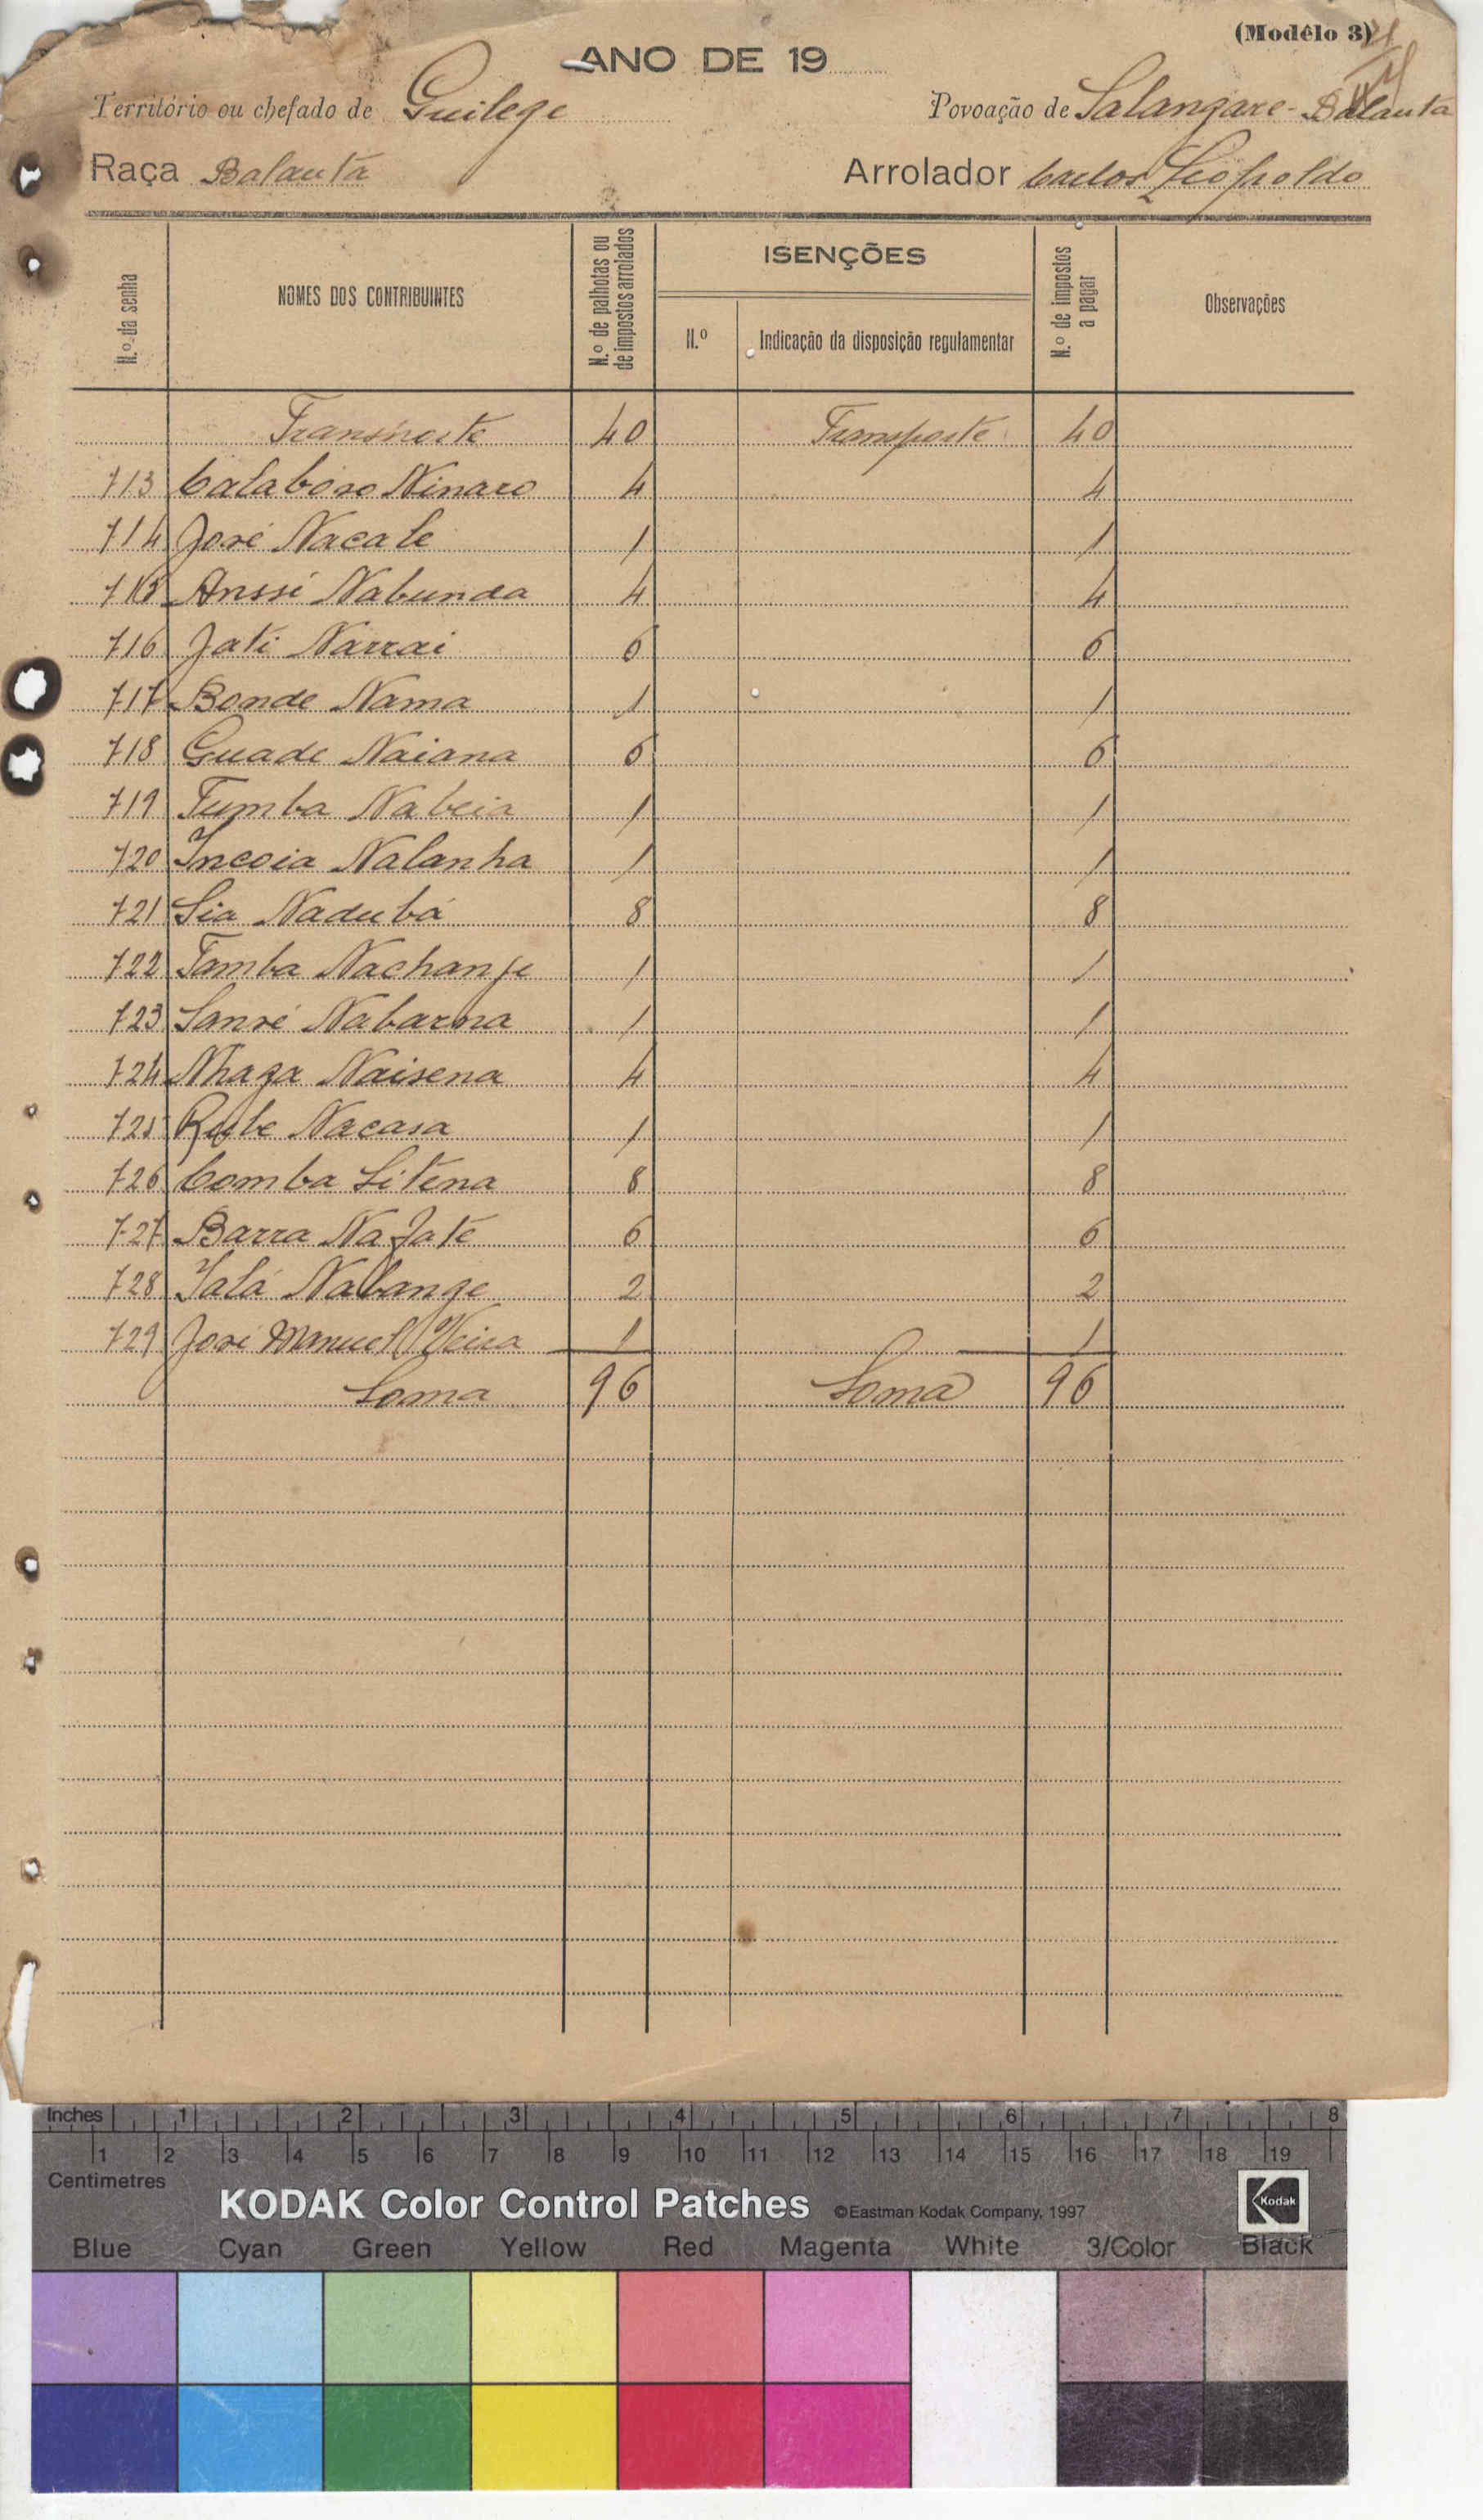 (Modêlo 3)
ANO DE 19
Território ou chefado de Guilege
Povoação de Salangare - Balanta
Raça Balanta
Arrolador Carlos Leopoldo
N.º da senha
NOMES DOS CONTRIBUINTES
N.º de palhotas ou de impostos arrolados
ISENÇÕES
N.º
Indicação da disposição regulamentar
N.º de impostos a pagar
Observações
Transporte 40 Transporte 40
713 Calaboso Ninaro 4 4
714 José Nacale 1 1
715 Anssi Nabunda 4 4
716 Jati Narrai 6 6
717 Bonde Nama 1 1
718 Guade Naiana 6 6
719 Tumba Nabeia 1 1
720 Incoia Nalanha 1 1
721 Sia Nadubá 8 8
722 Tamba Nachanje 1 1
723 Sansé Nabarna 1 1
724 Nhaga Naisena 4 4
725 Rube Nacasa 1 1
726 Comba Sitena 8 8
727 Barra Na Jate 6 6
728 Jalá Nabange 2 2
729 José Manuel Vieira 1 1
Soma 96 Soma 96
Inches 1 2 3 4 5 6 7 8
1 2 3 4 5 6 7 8 9 10 11 12 13 14 15 16 17 18 19
Centimetres
KODAK Color Control Patches ©Eastman Kodak Company, 1997 Kodak
Blue Cyan Green Yellow Red Magenta White 3/Color Black